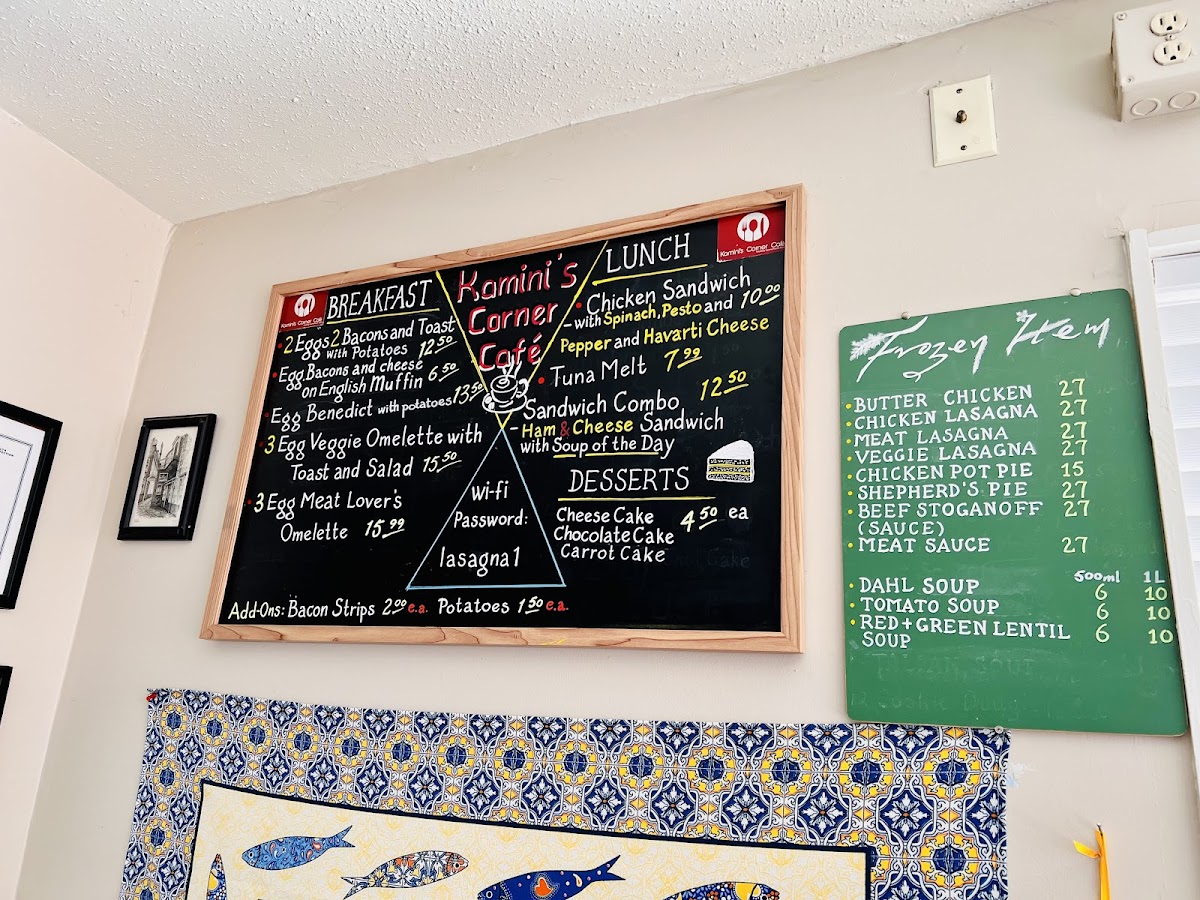 Kamini's Corner Café
BREAKFAST
• 2 Eggs 2 Bacons and Toast
with Potatoes 12.50
• Egg, Bacons and cheese
on English Muffin 6.50
• Egg Benedict with potatoes 13.50
• 3 Egg Veggie Omelette with
Toast and Salad 15.50
• 3 Egg Meat Lover's
Omelette 15.99
Add-Ons: Bacon Strips 2.00 e.a. Potatoes 1.50 e.a.
Kamini's
Corner
Café
wi-fi
Password:
lasagna1
LUNCH
Kamini's Corner Café
• Chicken Sandwich
- with Spinach, Pesto and 10.00
Pepper and Havarti Cheese
• Tuna Melt 7.99
Sandwich Combo 12.50
- Ham & Cheese Sandwich
with Soup of the Day
DESSERTS
Cheese Cake 4.50 ea
Chocolate Cake
Carrot Cake
Frozen Item
• BUTTER CHICKEN 27
• CHICKEN LASAGNA 27
• MEAT LASAGNA 27
• VEGGIE LASAGNA 27
• CHICKEN POT PIE 15
• SHEPHERD'S PIE 27
• BEEF STOGANOFF 27
(SAUCE)
• MEAT SAUCE 27
500ml 1L
• DAHL SOUP 6 10
• TOMATO SOUP 6 10
• RED+GREEN LENTIL 6 10
SOUP